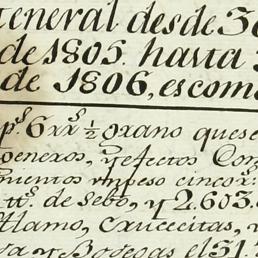 eneral desde 30
de 1805. hasta
de 1806, es com
p.s 6 xx.s ½ oxano que se
genexos, y efectos Con
mientos en peso cinco
tt.s de Sebo, y 2.603.
Alamo, cxucecitas, y
va y Bodegas el 31.